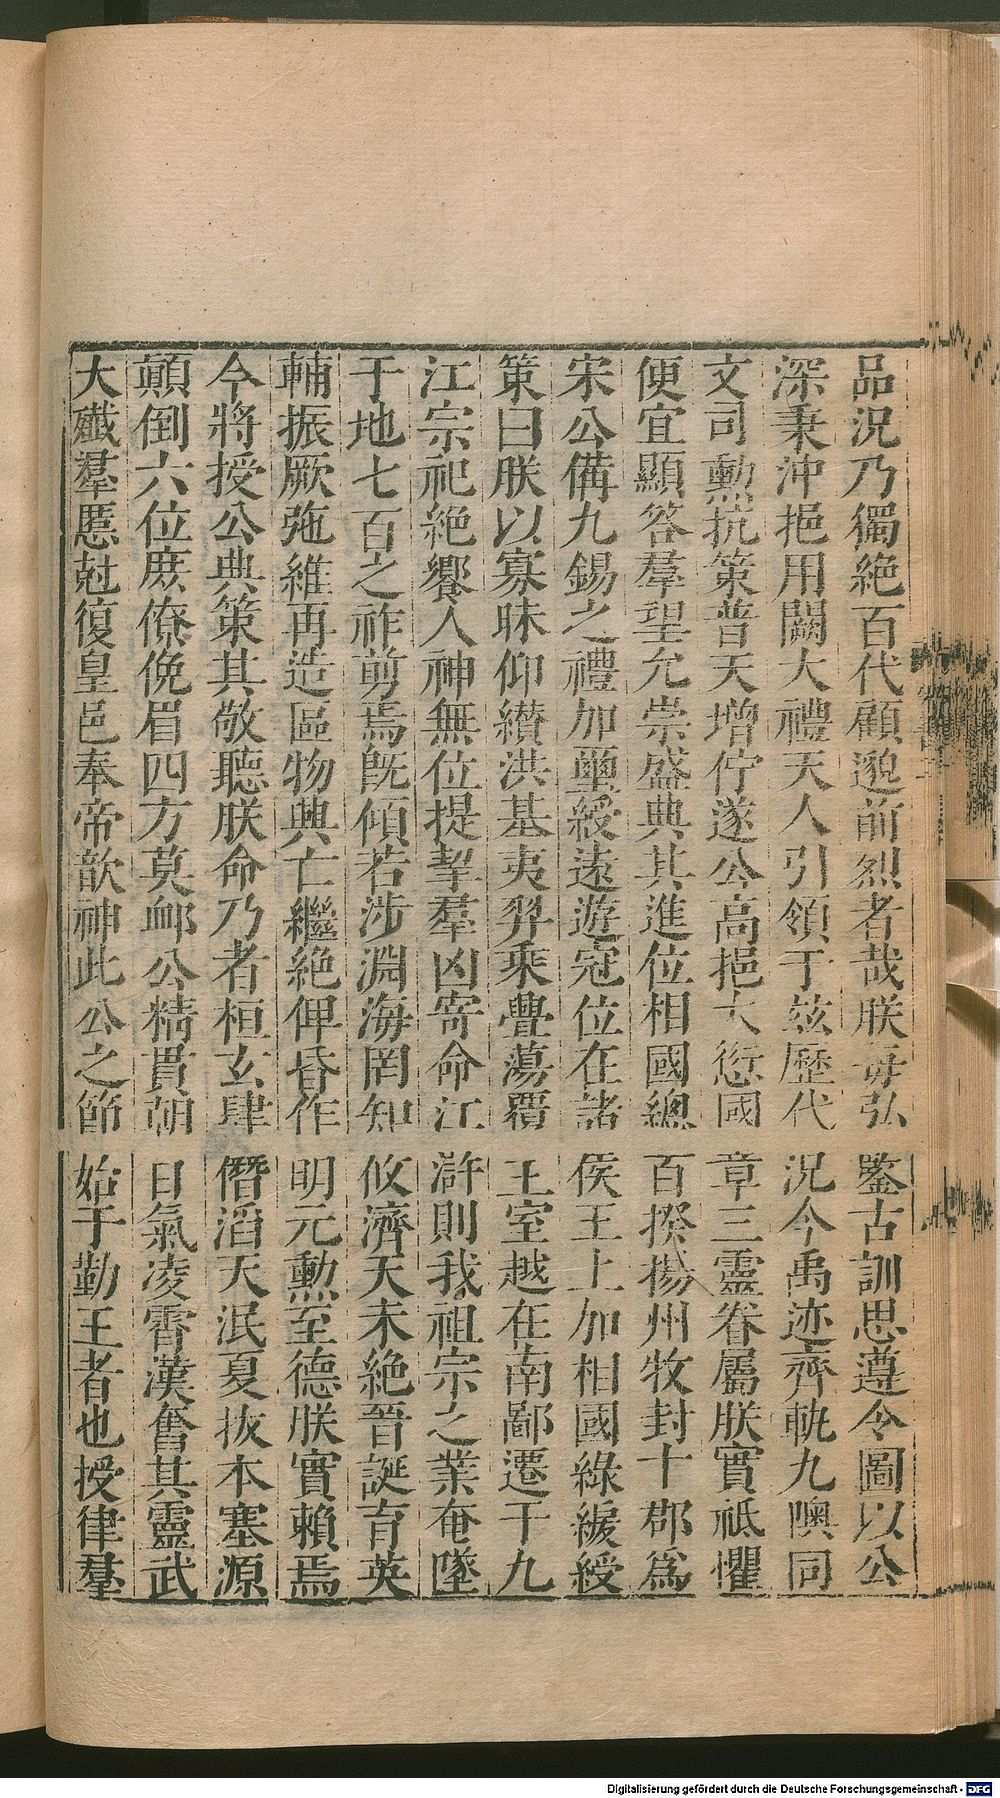 品況乃獨絶百代顧邈前烈者哉朕每弘鑒古訓思遵令圖以公
深秉沖挹用闕大禮天人引領于茲歷代況今禹迹齊軌九隩同
文司勲抗策普天增佇遂公高挹大愆國章三靈眷屬朕實祗懼
便宜顯答羣望允崇盛典其進位相國緫百揆揚州牧封十郡爲
宋公備九錫之禮加璽綬遠遊冠位在諸侯王上加相國綠綟綬
策曰朕以寡昧仰纉洪基夷羿乗釁蕩覆王室越在南鄙遷于九
江宗祀絶饗人神無位提挈羣凶寄命江滸則我祖宗之業奄墜
于地七百之祚剪焉旣傾若涉淵海罔知攸濟天未絶晉誕育英
輔振厥弛維再造區物興亡繼絶俾昏作明元勲至德朕實賴焉
今將授公典策其敬聽朕命乃者桓玄肆僭滔天泯夏拔本塞源
顚倒六位庶僚俛眉四方莫䘏公精貫朝日氣凌霄漢奮其靈武
大殲羣慝尅復皇邑奉帝歆神此公之節始于勤王者也授律羣
Digitalisierung gefördert durch die Deutsche Forschungsgemeinschaft - DFG